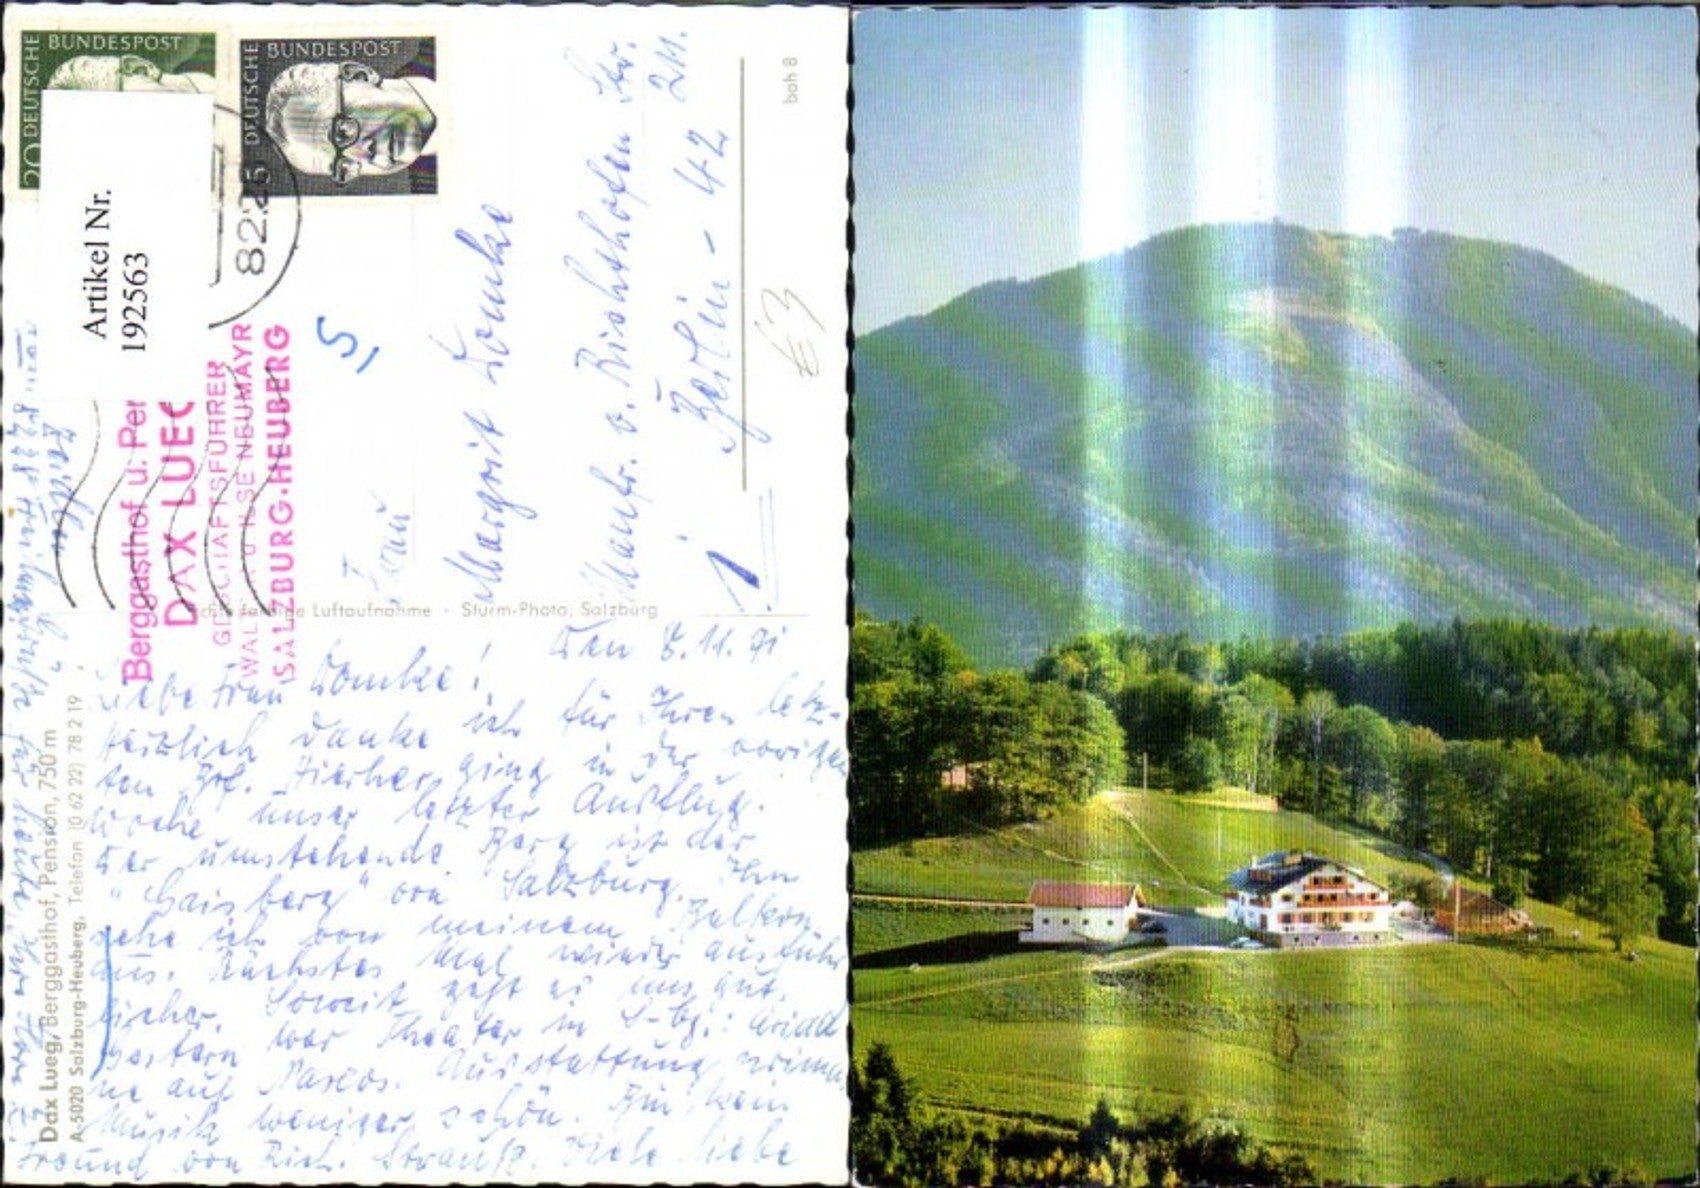 DEUTSCHE BUNDESPOST
20
DEUTSCHE BUNDESPOST
5
822
Artikel Nr.
192563
Berggasthof u. Per
DAX LUEG
GESCHÄFTSFÜHRER
WALTER U. ILSE NEUMAYR
SALZBURG-HEUBERG
boh 8
€3
Frau
Margrit Domke
Manfr. v. Richthofen Str.
2 
Berlin - 42
1
Luftaufnahme · Sturm-Photo, Salzburg
Den 8.11.71
Liebe Frau Domke!
Herzlich danke ich für Ihren letz-
ten Brf. Hierher ging in der vorigen
Woche unser letzter Ausflug.
Der umstehende Berg ist der
"Gaisberg" von Salzburg. Ihn
sehe ich von meinem Balkon
aus. Nächstes Mal wieder ausführ
licher. Soweit geht es uns gut.
Gestern war Theater in S-bg.: Ariad
ne auf Naxos. Ausstattung prima
Musik weniger schön. Bin kein
Freund von Rich. Strauß. Viele liebe
Grüße für heute Ihre
Dax Lueg, Berggasthof, Pension, 750 m
A-5020 Salzburg-Heuberg, Telefon (0 62 22) 78 2 19